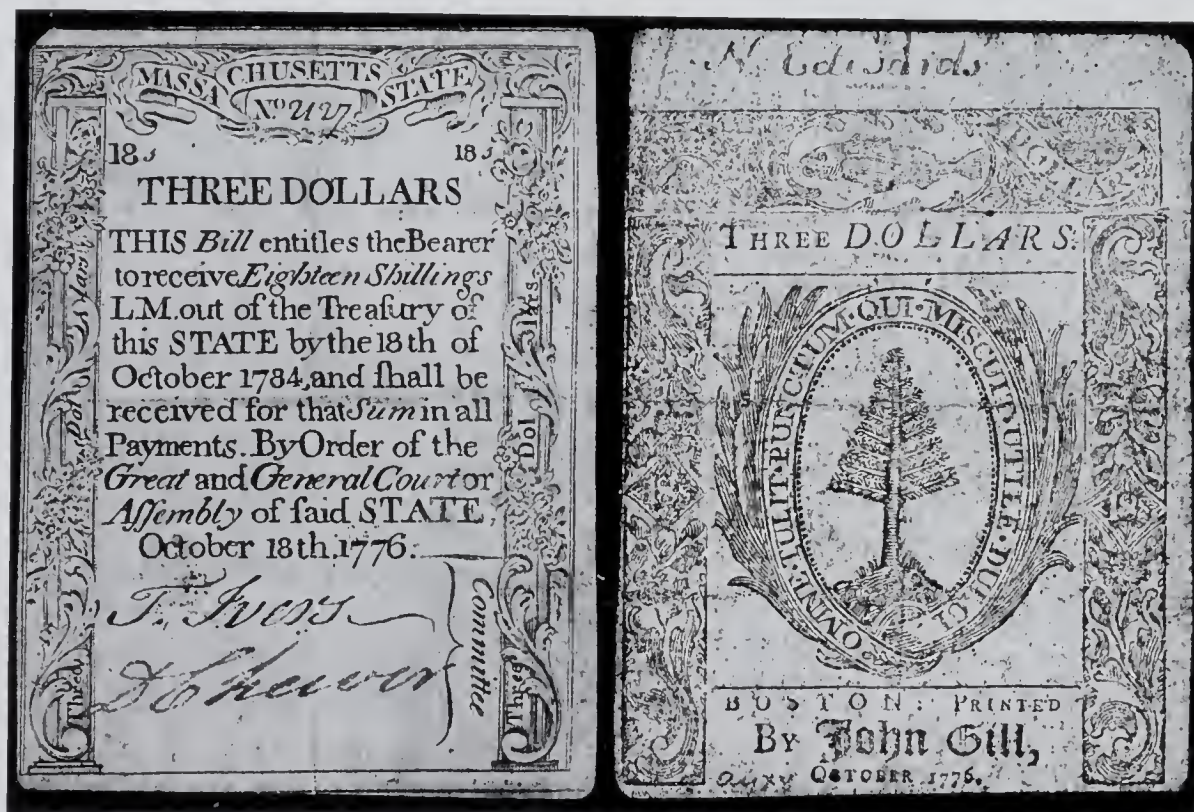 MASSACHUSETTS STATE
No.
18s 18s
THREE DOLLARS
THIS Bill entitles the Bearer
to receive Eighteen Shillings
L.M. out of the Treaſury of
this STATE by the 18th of
October 1784, and ſhall be
received for that Sum in all
Payments. By Order of the
Great and General Court or
Aſſembly of ſaid STATE,
October 18th. 1776.
T. Ivers
D Cheever
Committe
Three
Dol lars
Three
N. Edwards
THREE DOLLARS.
OMNE·TULIT·PUNCTUM·QUI·MISCUIT·UTILE·DULCI
BOSTON: PRINTED
BY John Gill,
OCTOBER 1776.